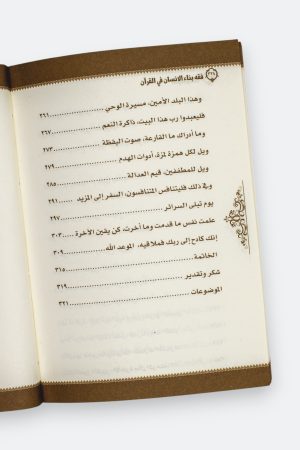 فقه بناء الانسان في القرآن
وهذا البلد الأمين، مسيرة الوحي ٢٦١
فليعبدوا رب هذا البيت، ذاكرة النعم ٢٦٧
وما أدراك ما القارعة، صوت اليقظة ٢٧٣
ويل لكل همزة لمزة، أدوات الهدم ٢٧٩
ويل للمطففين، قيم العدالة ٢٨٥
وفي ذلك فليتنافس المتنافسون، السفر إلى المزيد ٢٩١
يوم تبلى السرائر ٢٩٧
علمت نفس ما قدمت وما أخرت، كن يقين الآخرة ٣٠٣
إنك كادح إلى ربك فملاقيه، الموعد الله ٣٠٩
الخاتمة ٣١٥
شكر وتقدير ٣١٩
الموضوعات ٣٢١